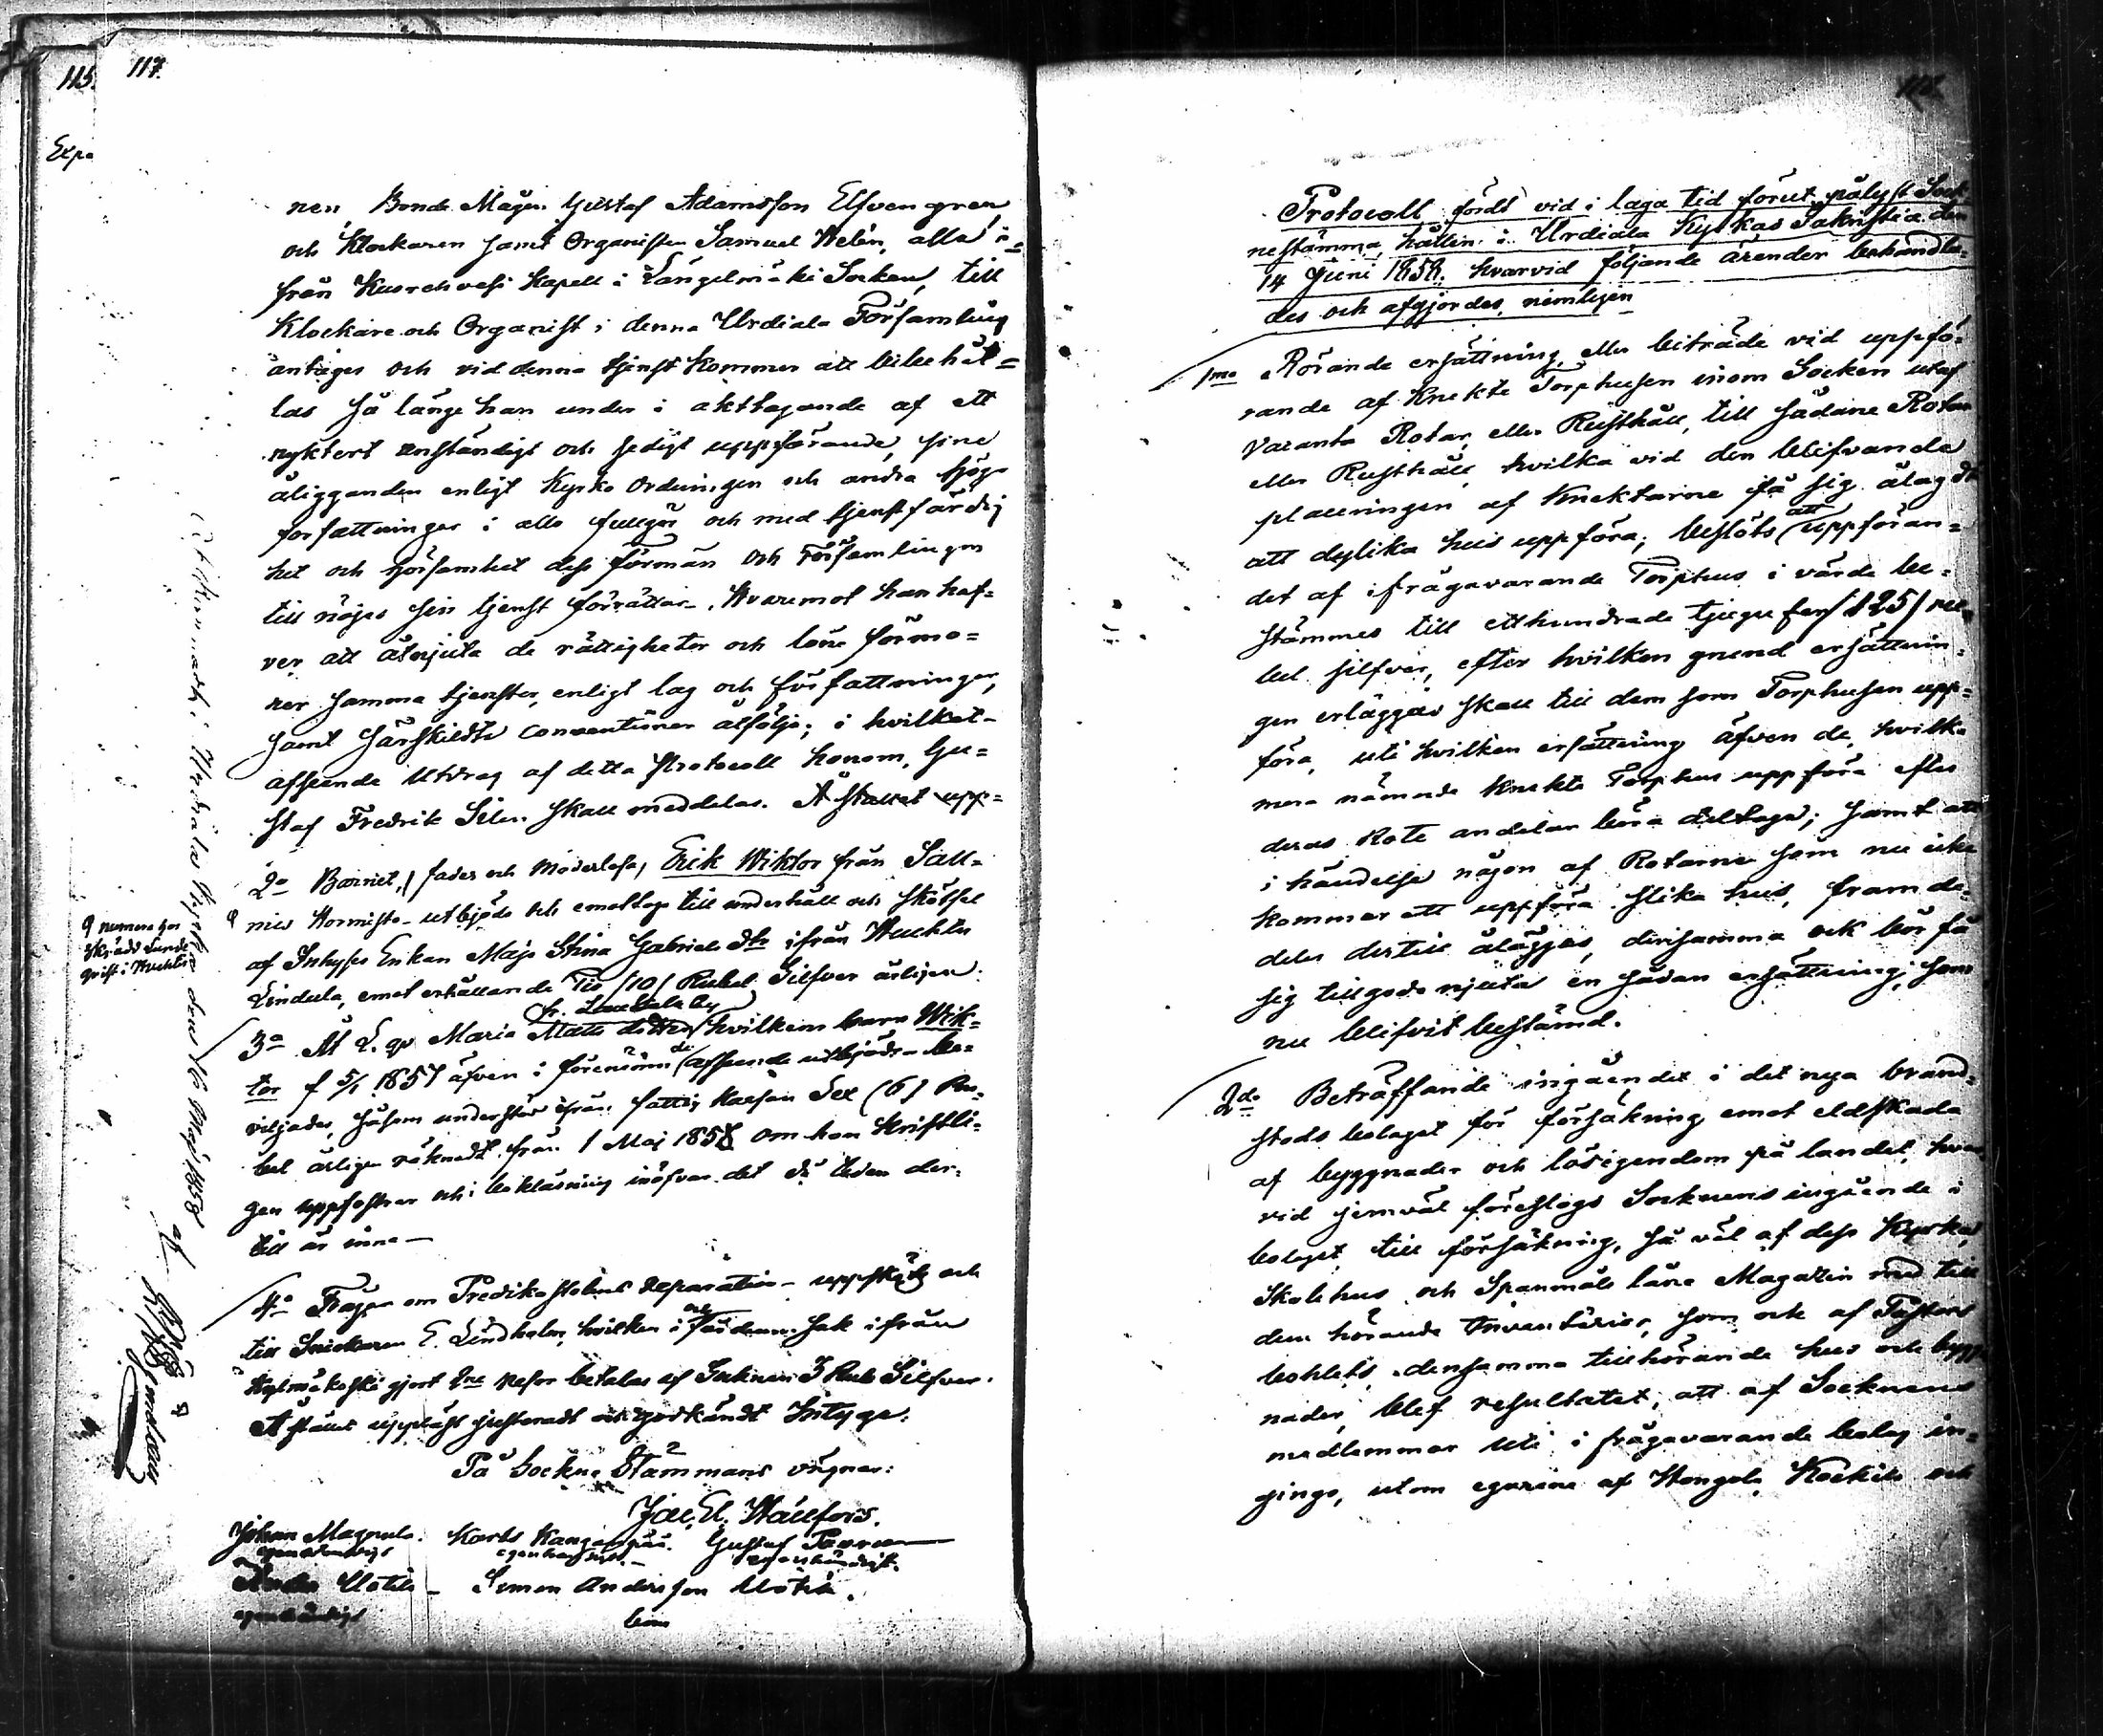 115.
117
Exp.
nen, Bonde Mågen Gustaf Adamsson Elfvengren
och Klockaren samt Organisten Samuel Welèn, alla i-
från Kuorehvesi Kapell i Längelmäki Socken, till
Klockare och Organist i denna Urdiala Församling
antages och vid denna tjenst kommer att bibehål=
las så länge han under i akttagande af ett
nyktert anständigt och sedigt uppförande, sine
åligganden enligt Kyrko Ordningen och andra
författningar i allo fullgör och med tjenstfärdig
het och hörsamhet dess förmän och Församlingen
till nöjes sin tjenst förrättar. Hvaremot han haf=
ver att åtnjuta de rättigheter och löne förmo=
ner samma tjenster, enligt lag och författningar,
samt särskildte conventioner åtfölja; i hvilket
afseende Utdrag af detta Protocoll honom, Gu=
staf Fredrik Silen skall meddelas. Å stället upp=
2o Barnet, fader och moderlösa, Erik Wiktor från Sall=
nies Hormisto utbjöds och emottogs till underhåll och skötsel
af Inhyses Enkan Maja Stina Gabriels dtr ifrån Huchtis
Lindula, emot erhållande Tio /10/ Rubel Silfver årligen.
fr. Laukkola by
3o Å L. qv. Maria Matts dotter hvilkens barn Wik=
tor f 5/1 1857 äfven i förenämn de afseende utbjöds be=
viljades, såsom understöd ifrån fattig kassan Sex (6) Ru=
bel årligen räknadt från 1 Maj 1858 om hon Skriftli=
gen uppfostrar och i beklädning inöfvar det då tiden der=
till är inne
4o Frågan om Predikostolens Reparation uppsköts och
till Snickaren E. Lindholm, hvilken i
gjort 2ne resor betalas af Socknen 3 Rub Silfver.
Å stället uppläst justeradt och godkändt Intyga.
På Sockne Stämmans vägnar:
Jac. El. Wallfors.
Johan Magnula. Gustaf
egenhändigt egenhändigt egenhändigt.
Uotila Simon Andersson Uotila.
egenhändigt
q numera hos
Skrädd Lund
qvist i Huchtis
i Urdiala Kyrka den 16 Maj 1858
af
Protocoll fördt vid i laga tid förut pålyst Sock=
nestämma, hållen i Urdiala Kyrkas Sakristia den
14 Juni 1858. hvarvid följande ärender behandla=
des och afgjordes, nemligen
1mo Rörande ersättning eller biträde vid uppfö=
rande af Knekte Torphusen inom Socken utaf
Vacanta Rotar eller Rusthåll, till sådane Rotar
eller Rusthåll, hvilka vid den blifvande
placeringen af Knektarne få sig ålagdt
att dylika hus uppföra; beslöts att uppföran=
det af ifrågavarande Torphus i värde be=
stämmes till etthundrade tjugu fem /125/ ru=
bel silfver, efter hvilken grund ersättnin=
gen erläggas skall till dem som Torphusen upp=
föra, uti hvilken ersättning äfven de, hvilke
mera nämnde Knekte Torphus uppföra efter
deras Rote andelar böra deltaga; samt att
i händelse någon af Rotarne som nu icke
kommer att uppföra slika hus, framde=
deles dertill ålägges, densamma ock bör få
sig tillgodo njuta en sådan ersättning, som
nu blifvit bestämd.
2do Beträffande ingåendet i det nya brand=
stods bolaget för försäkring emot eldskada
af byggnader och lösegendom på landet, hvar
vid jemväl föreslogs Socknens ingående i
bolaget till försäkring, så väl af dess Kyrka,
Skolehus och Spannmåls låne Magazin med till
dem hörande Inventarier, som ock af Pastors
bohlets densamma tillhörande hus och bygg
nader, blef resultatet, att af Socknens
medlemmar uti i frågavarande bolag in=
gingo, utom egarne af Hongola, Kockila och